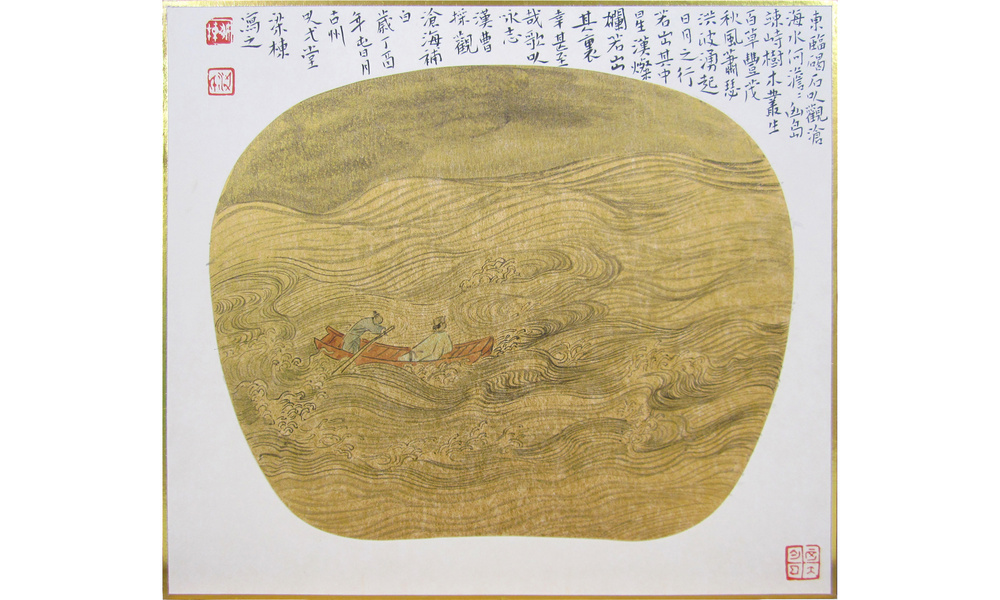 東臨碣石以觀滄
海水何澹〻幽島
竦峙樹木叢生
百草豐茂
秋風蕭瑟
洪波湧起
日月之行
若出其中
星漢燦
爛若出
其裏
幸甚至
哉歌以
咏志
漢曹
操觀
滄海補
白
歲丁酉
年 日月
吉州
堂
梁棟
寫之